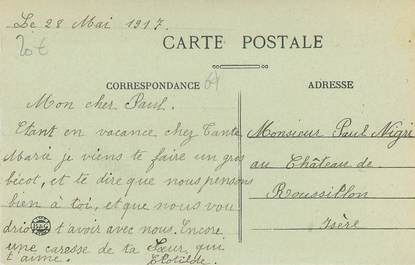 Le 28 Mai 1917.
20€
CARTE POSTALE
CORRESPONDANCE
64
ADRESSE
Mon cher Paul.
Etant en vacance, chez Tante
Marie je viens te faire un gros
bicot, et te dire que nous pensons
bien à toi, et que nous vou
drions t'avoir avec nous. Encore
une caresse de ta Sœur qui
t'aime. Clotilde.
Monsieur Paul Nigri
au Château de
Roussillon
Isère